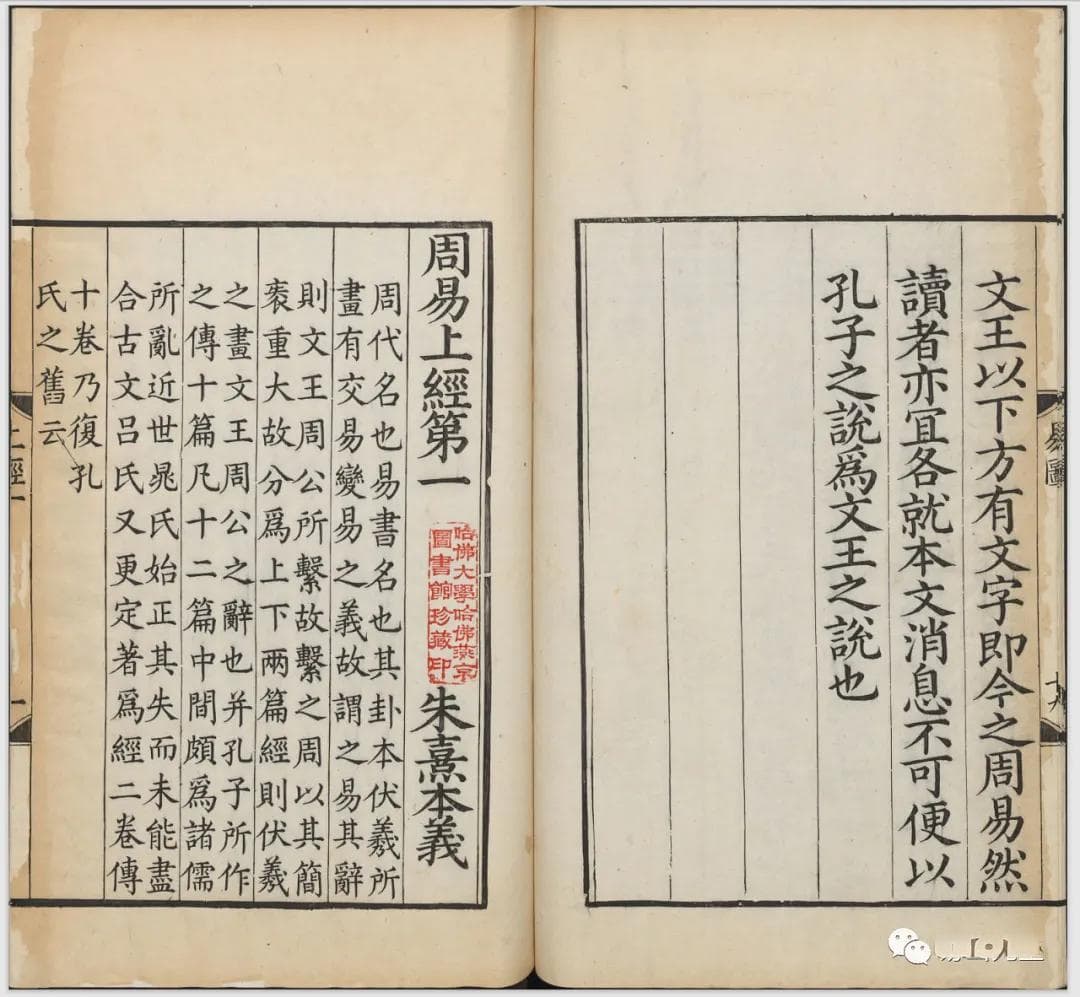 文王以下方有文字即今之周易然
讀者亦冝各就本文消息不可便以
孔子之說爲文王之說也
易圖
周易上經第一
朱熹本義
哈佛大學哈佛燕京
圖書館珍藏印
周代名也易書名也其卦本伏羲所
畫有交易變易之義故謂之易其辭
則文王周公所繫故繫之周以其簡
袠重大故分爲上下兩篇經則伏羲
之畫文王周公之辭也并孔子所作
之傳十篇凡十二篇中間頗爲諸儒
所亂近世晁氏始正其失而未能盡
合古文呂氏又更定著爲經二卷傳
十卷乃復孔
氏之舊云
上經一
一